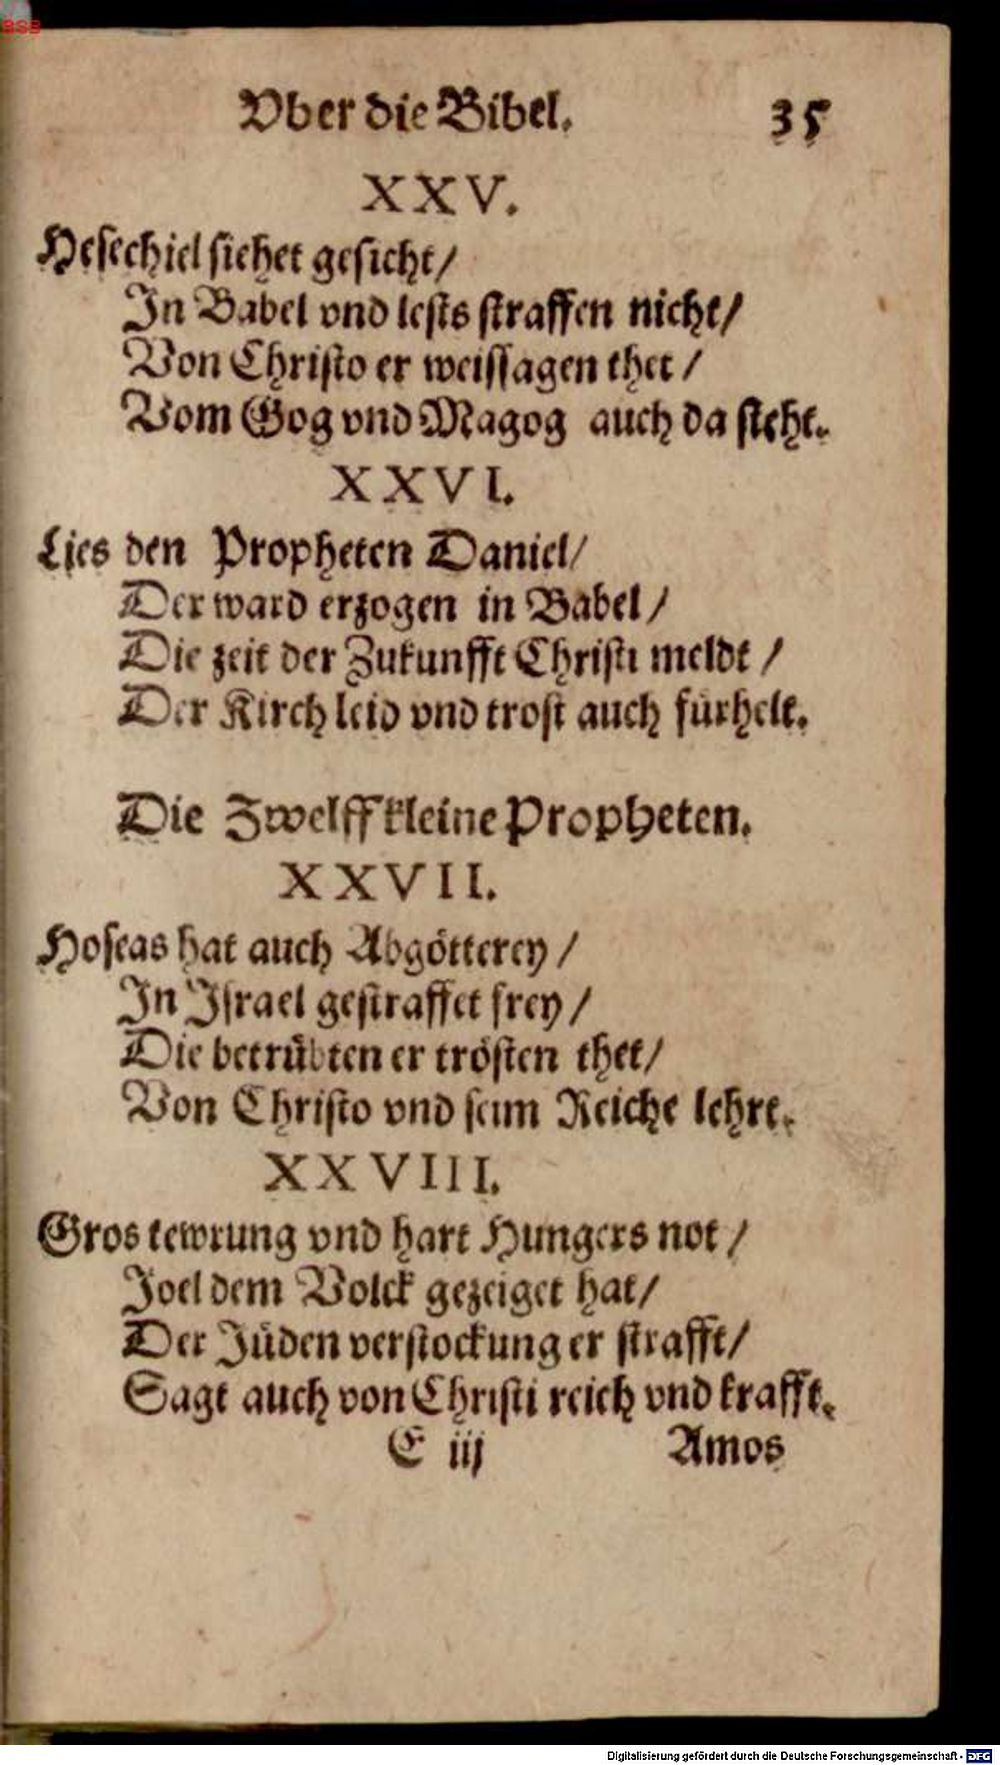 BSB
Vber die Bibel. 35
XXV.
Hesechiel siehet gesicht/
In Babel vnd lests straffen nicht/
Von Christo er weissagen thet/
Vom Gog vnd Magog auch da steht.
XXVI.
Lies den Propheten Daniel/
Der ward erzogen in Babel/
Die zeit der Zukunfft Christi meldt/
Der Kirch leid vnd trost auch fürhelt.
Die Zwelff kleine Propheten.
XXVII.
Hoseas hat auch Abgötterey/
In Israel gestraffet frey/
Die betrübten er trösten thet/
Von Christo vnd seim Reiche lehrt.
XXVIII.
Gros tewrung vnd hart Hungers not/
Joel dem Volck gezeiget hat/
Der Jüden verstockung er strafft/
Sagt auch von Christi reich vnd krafft.
E iij Amos
Digitalisierung gefördert durch die Deutsche Forschungsgemeinschaft - DFG